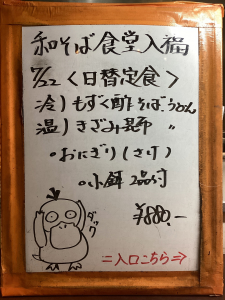 和そば食堂入福
7/22 <日替定食>
冷)もずく酢そば.うどん
温)きざみ昆布 〃
•おにぎり(さけ)
•小鉢 2品付
¥880.-
ダック
=入口こちら⇒